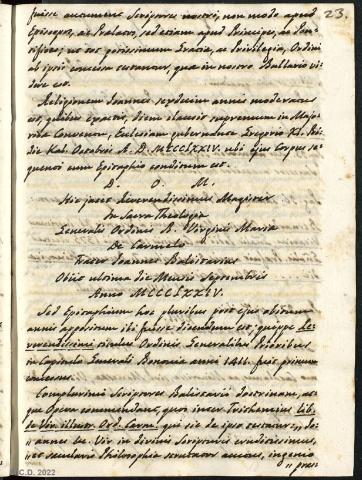 23.
fuisse autumant Scriptores nostri, non modo apud
Episcopos, ac Prælatos, sed etiam apud Principes, ac Pon-
tifices; ut tot potissimum Gratiæ, ac Privilegia, Ordini
ab ipsis concessa testantur, quæ in nostro Bullario vi-
dere est.
Religionem Joannes sexdecim annis moderatus
est, quibus expactis, diem clausit supremum in Majo-
Conventu, Ecclesiam gubernante Gregorio XI. Pri-
die Kal. Octobris A. D. MCCCLXXIV. ubi ejus Corpus se-
quenti cum Epitaphio conditum est.
D. O. M.
Hic jacet Reverendissimus Magister
In Sacra Theologia
Generalis Ordinis B. Virginis Mariæ
De Carmelo
Frater Joannes Balistarius
Obiit ultima die Mensis Septembris
Anno MCCCLXXIV.
Sed Epitaphium hoc pluribus post ejus obitum
annis appositum ibi fuisse dicendum est, quippe Re-
verendissimi titulus Ordinis Generalibus Prioribus
in Capitulo Generali Bononiæ anni 1411. fuit primum
concessus.
Complurimi Scriptores Balistarii doctrinam, at-
que Opera commendant, quos inter Trithemius Lib.
de Vir. illustr. Ord. Carm. qui sic de ipso testatur: „Jo-
„annes &c. Vir in divinis Scripturis eruditissimus,
„et sæcularis Philosophiæ scrutator acutus, ingenio
„præs-
C.D. 2022